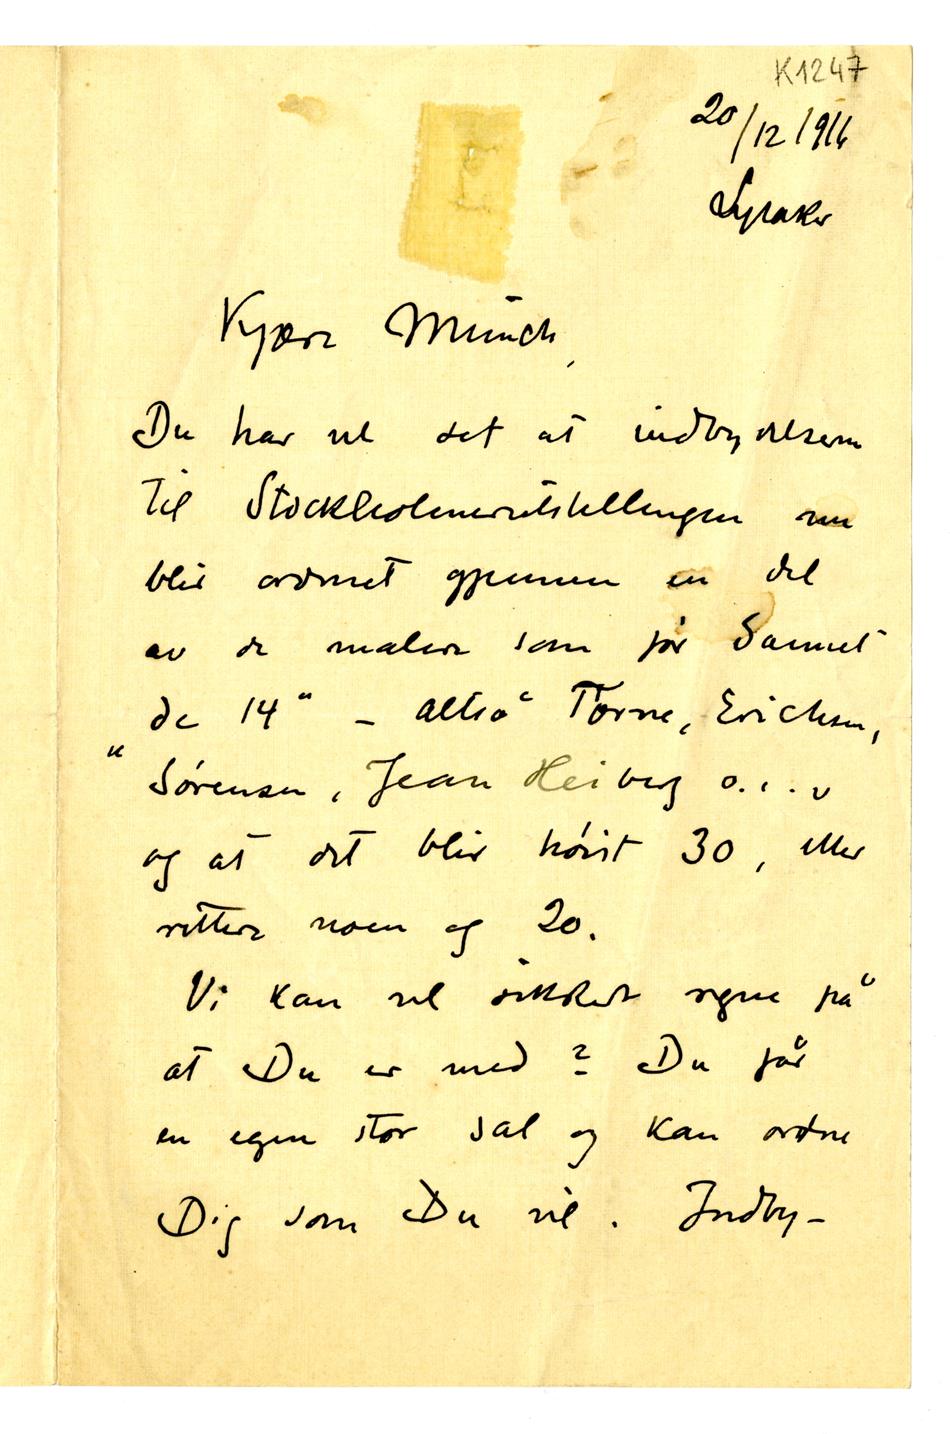 K1247
20/12 1916
Lysaker
Kjære Munch,
Du har vel set at indbydelserne
til Stockholmerutstillingen nu
blir ordnet gjennem en del
av de malere som før dannet
de 14" – altså Torne, Erichsen,
"
Sørensen, Jean Heiberg o.s.v
og at det blir høist 30, eller
rettere noen og 20.
Vi kan vel sikkert regne på
at Du er med? Du får
en egen stor sal og kan ordne
Dig som Du vil. Indby-